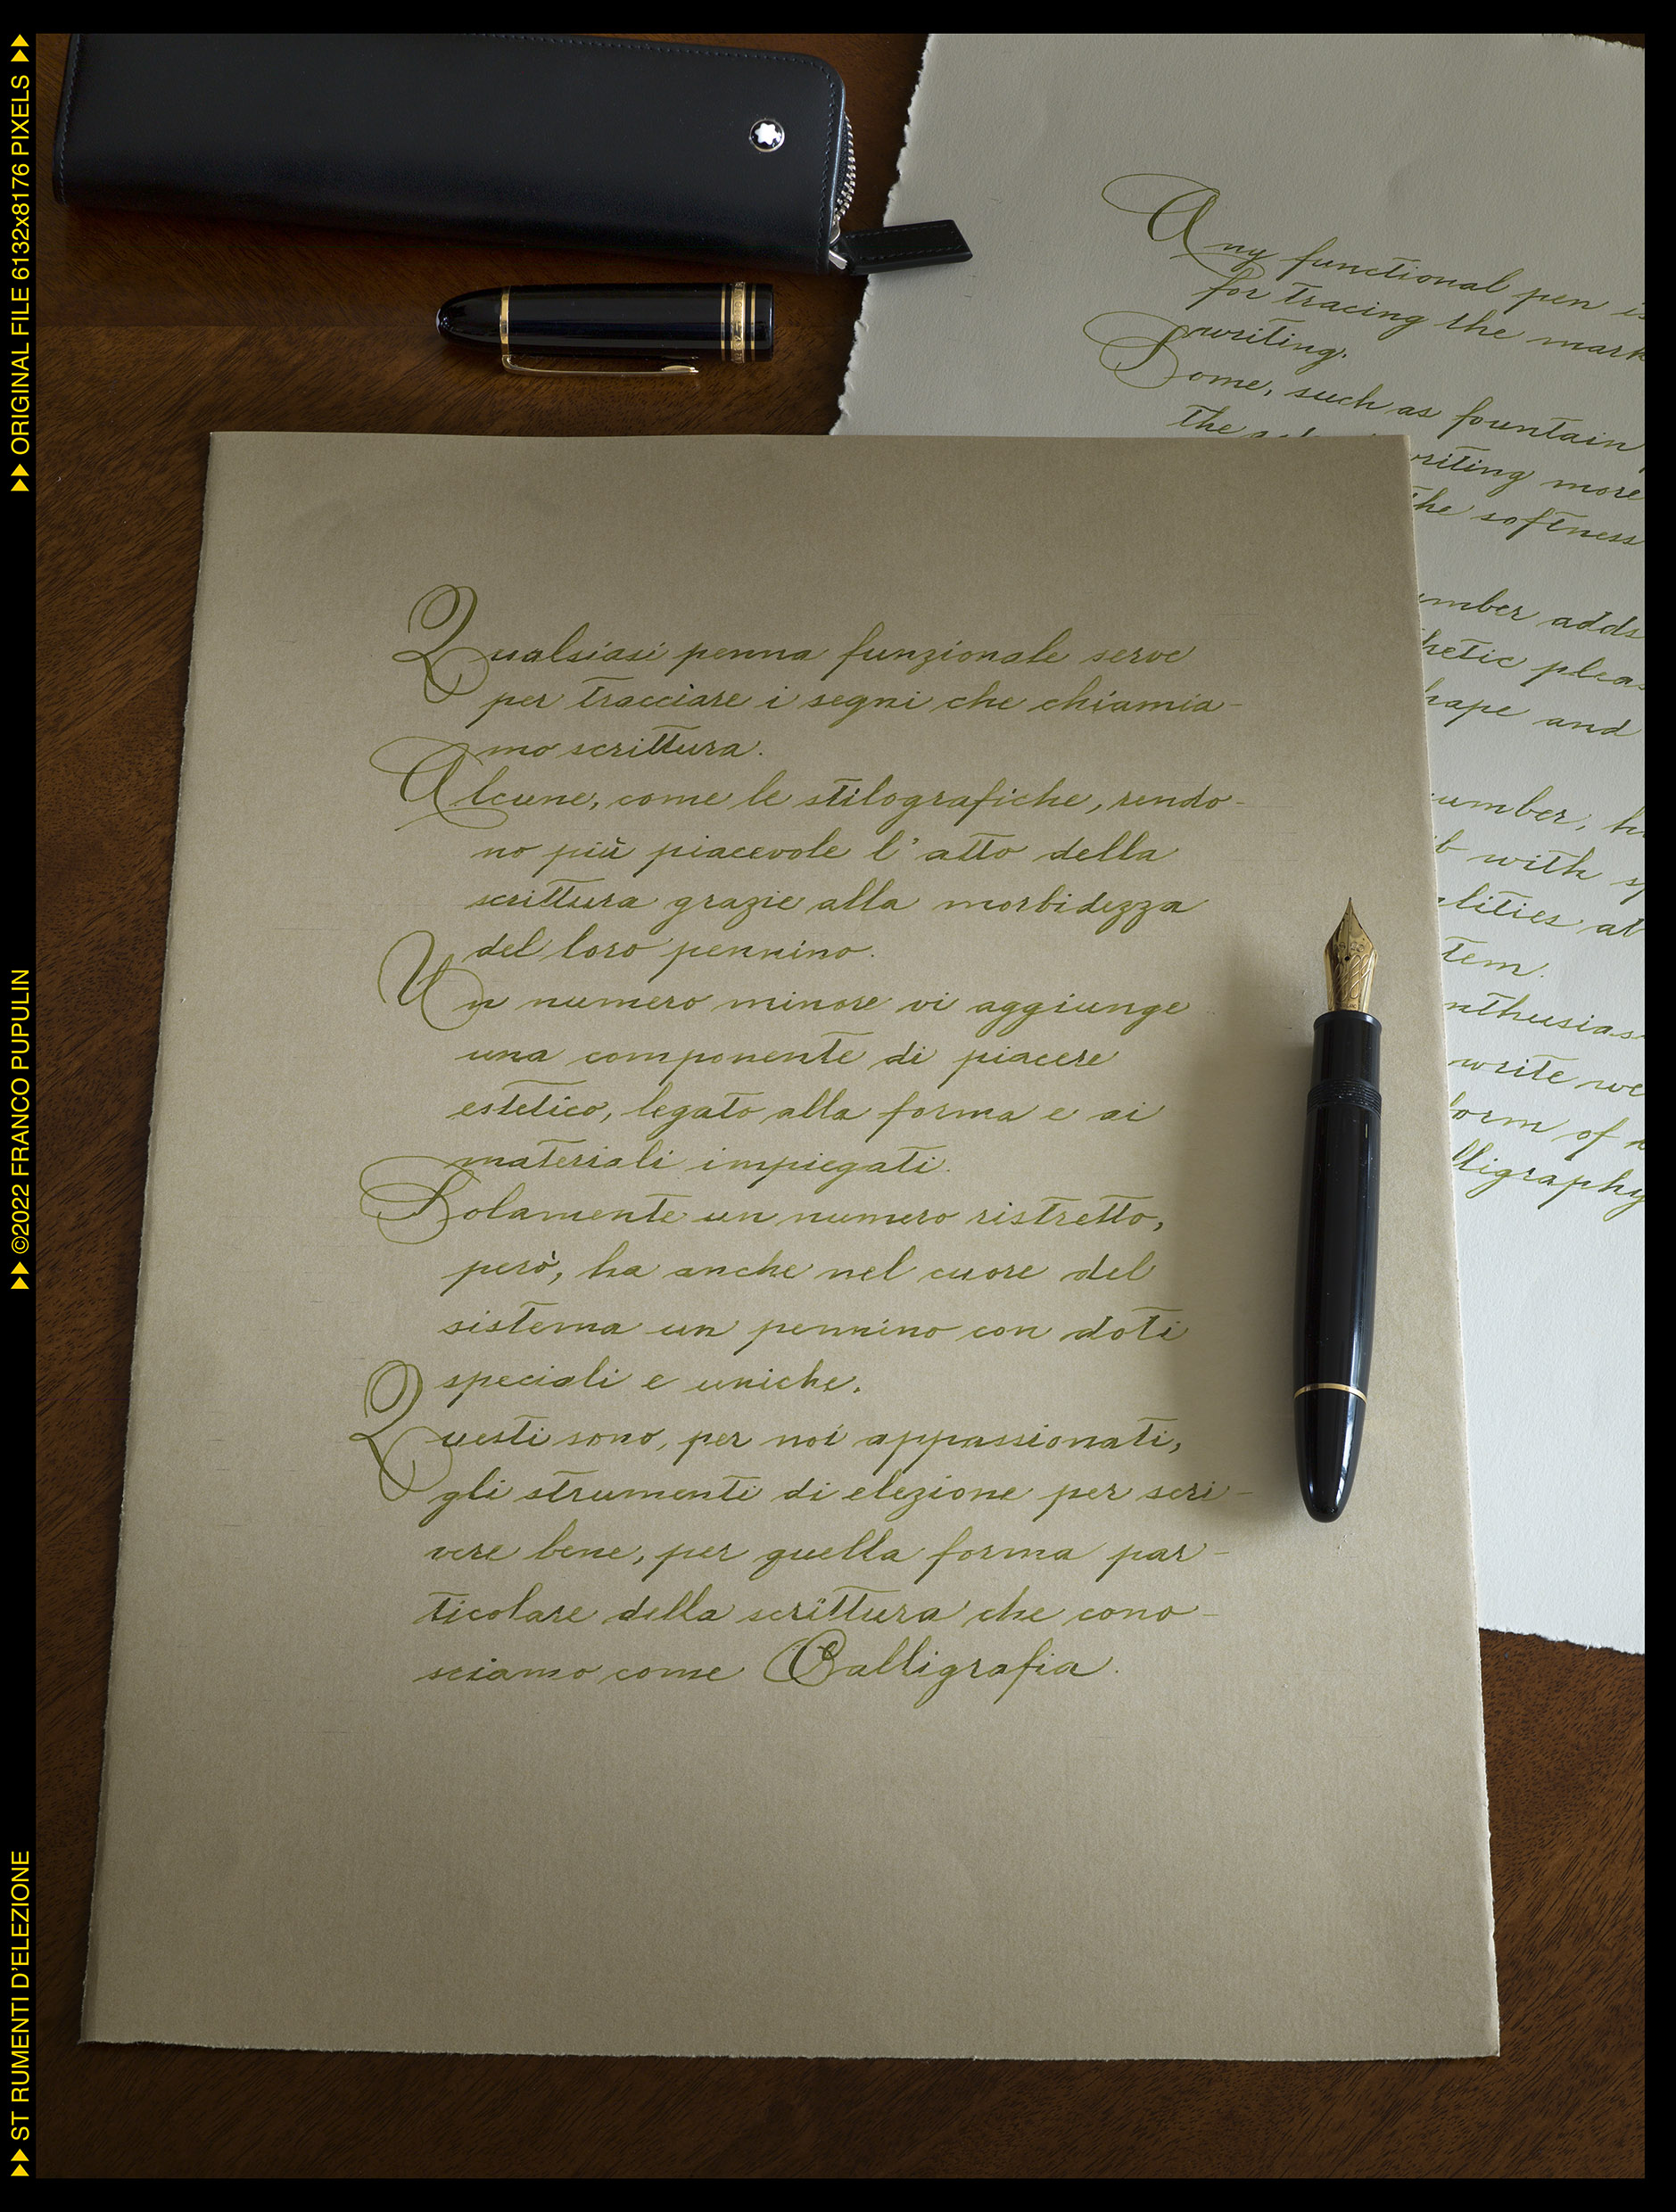 Qualsiasi penna funzionale serve
per tracciare i segni che chiamia-
mo scrittura.
Alcune, come le stilografiche, rendo-
no più piacevole l'atto della
scrittura grazie alla morbidezza
del loro pennino.
Un numero minore vi aggiunge
una componente di piacere
estetico, legato alla forma e ai
materiali impiegati.
Solamente un numero ristretto,
però, ha anche nel cuore del
sistema un pennino con doti
speciali e uniche.
Questi sono, per noi appassionati,
gli strumenti di elezione per scri-
vere bene, per quella forma par-
ticolare della scrittura che cono-
sciamo come Calligrafia.
Any functional pen is
for tracing the mark
writing.
Some, such as fountain
the
writing more
the softness
umber adds
hetic pleas
hape and
umber, h
b with sp
alities at
tem.
nthusias
write we
form of
lligraphy
ORIGINAL FILE 6132x8176 PIXELS
©2022 FRANCO PUPULIN
ST RUMENTI D'ELEZIONE